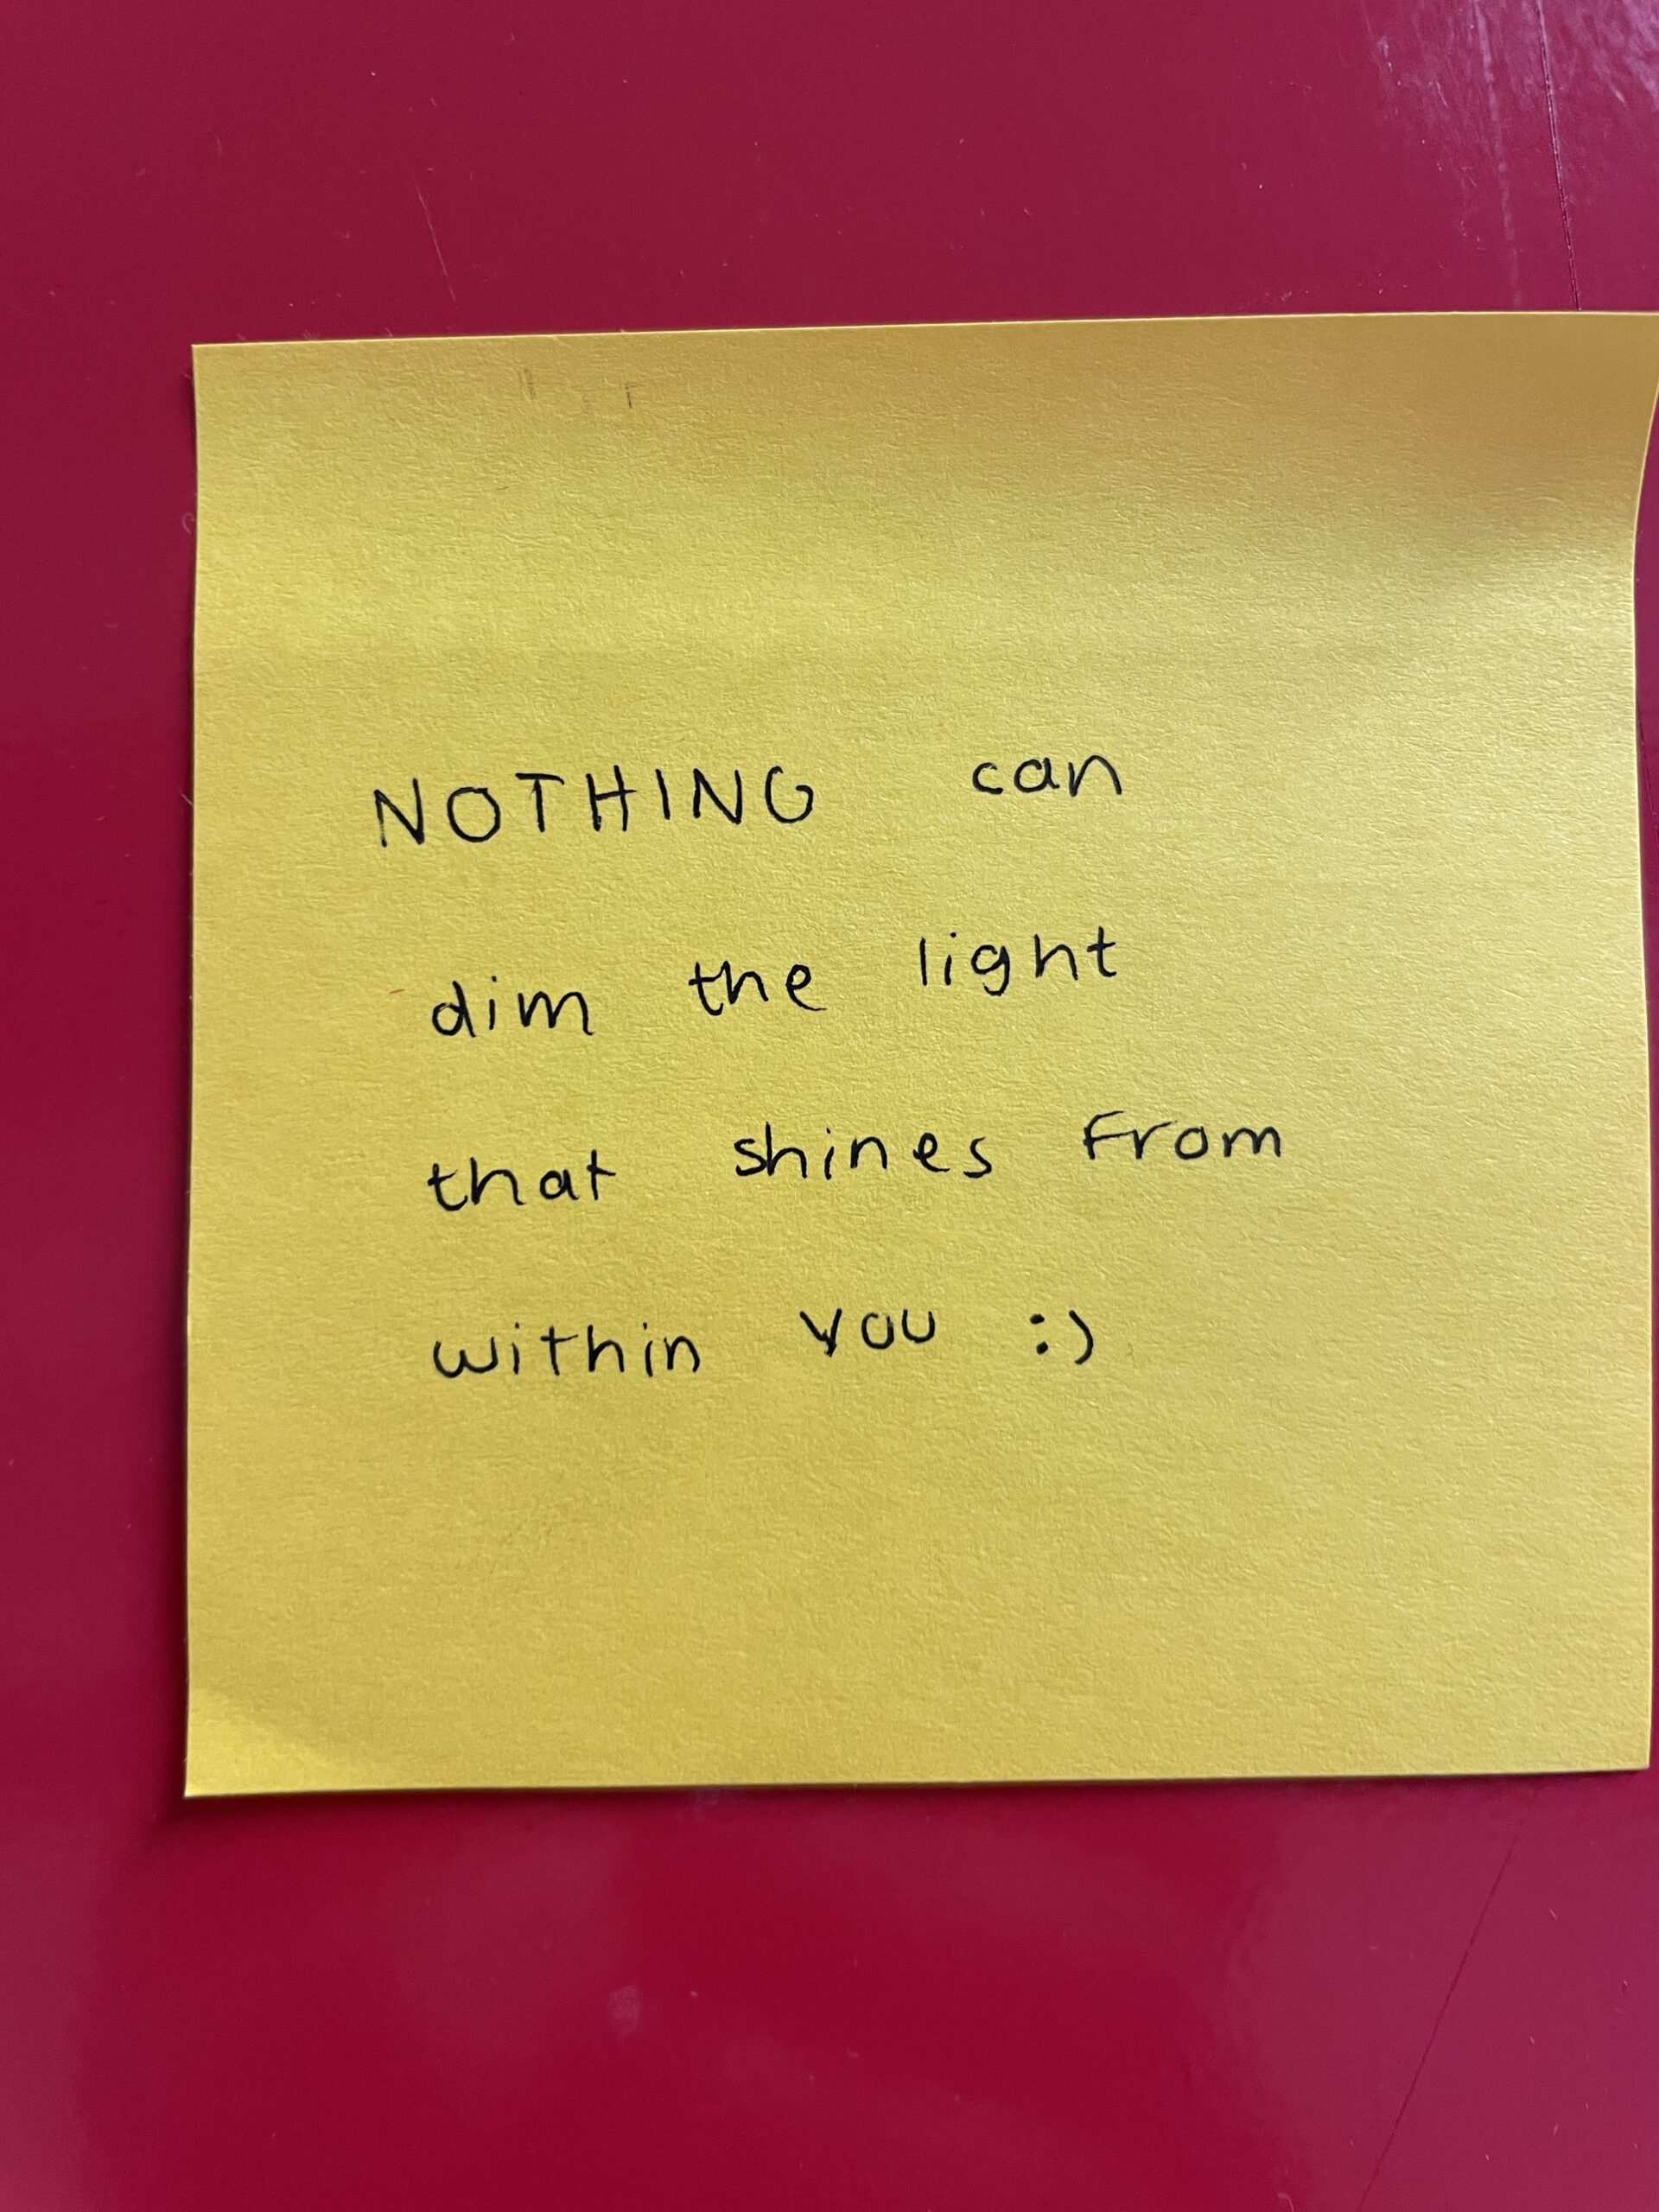 NOTHING can
dim the light
that shines from
within you :)